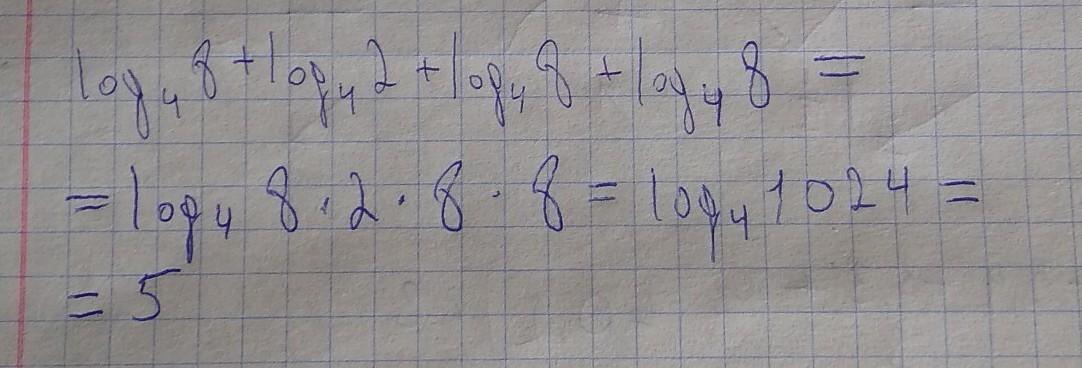 log₄ 8 + log₄ 2 + log₄ 8 + log₄ 8 =
= log₄ 8 · 2 · 8 · 8 = log₄ 1024 =
= 5